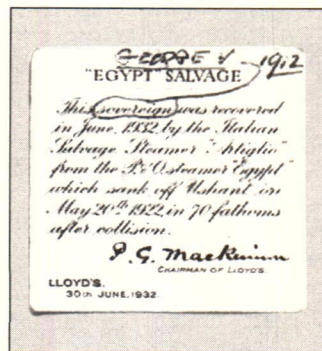 GEORGE V 1912
"EGYPT" SALVAGE
This sovereign was recovered
in June, 1932, by the Italian
Salvage Steamer "Artiglio"
from the P. & O. steamer "Egypt"
which sank off Ushant on
May 20th 1922, in 70 fathoms
after collision.
P. G. Mackinnon
CHAIRMAN OF LLOYD'S.
LLOYD'S.
30th JUNE, 1932.